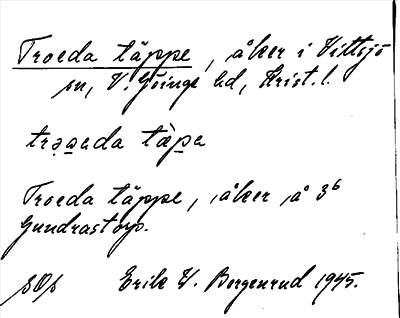 Troeda täppe, åker i Vittsjö
sn, V. Göinge hd, Krist. l.
trǝꞷeda tàpe
Troeda täppe, åker å 3⁶
Gundrastorp.
Erik W. Bergenrud 1945.